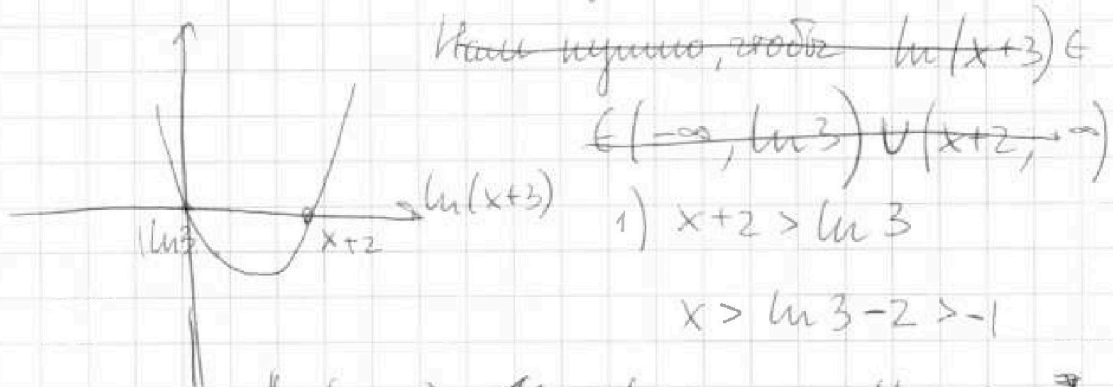 Нам нужно, чтобы ln(x+3) ∈
∈ (-∞, ln 3) ∪ (x+2, +∞)
ln(x+3)
ln 3
x+2
1) x+2 > ln 3
x > ln 3 - 2 > -1